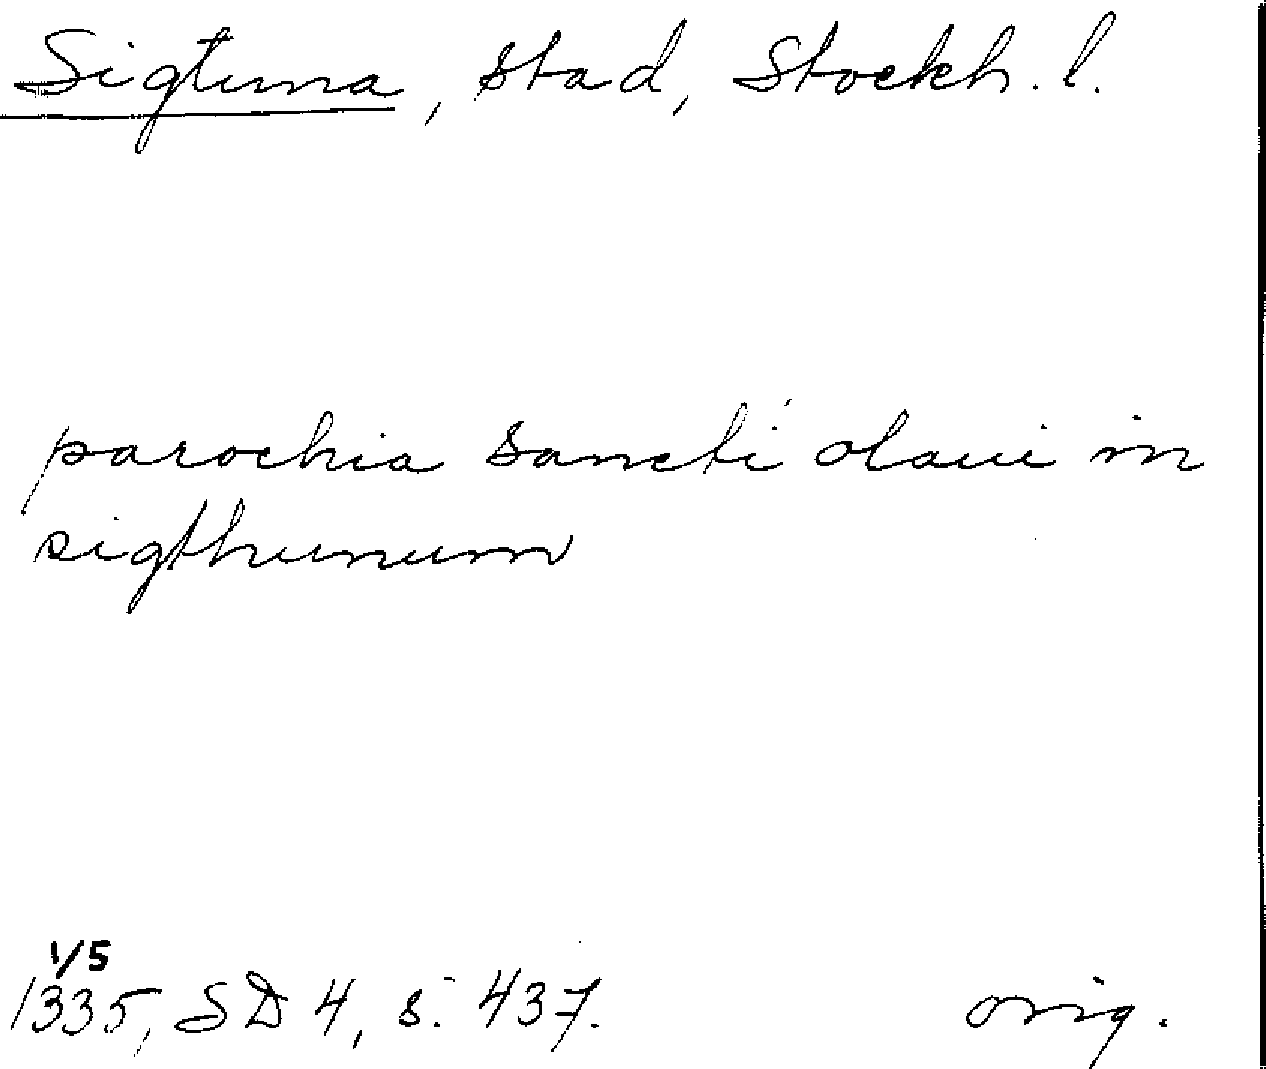 Sigtuna, stad, Stockh. l.
parochia sancti olaui in
sigthunum
1/5
1335, SD 4, s. 437. orig.